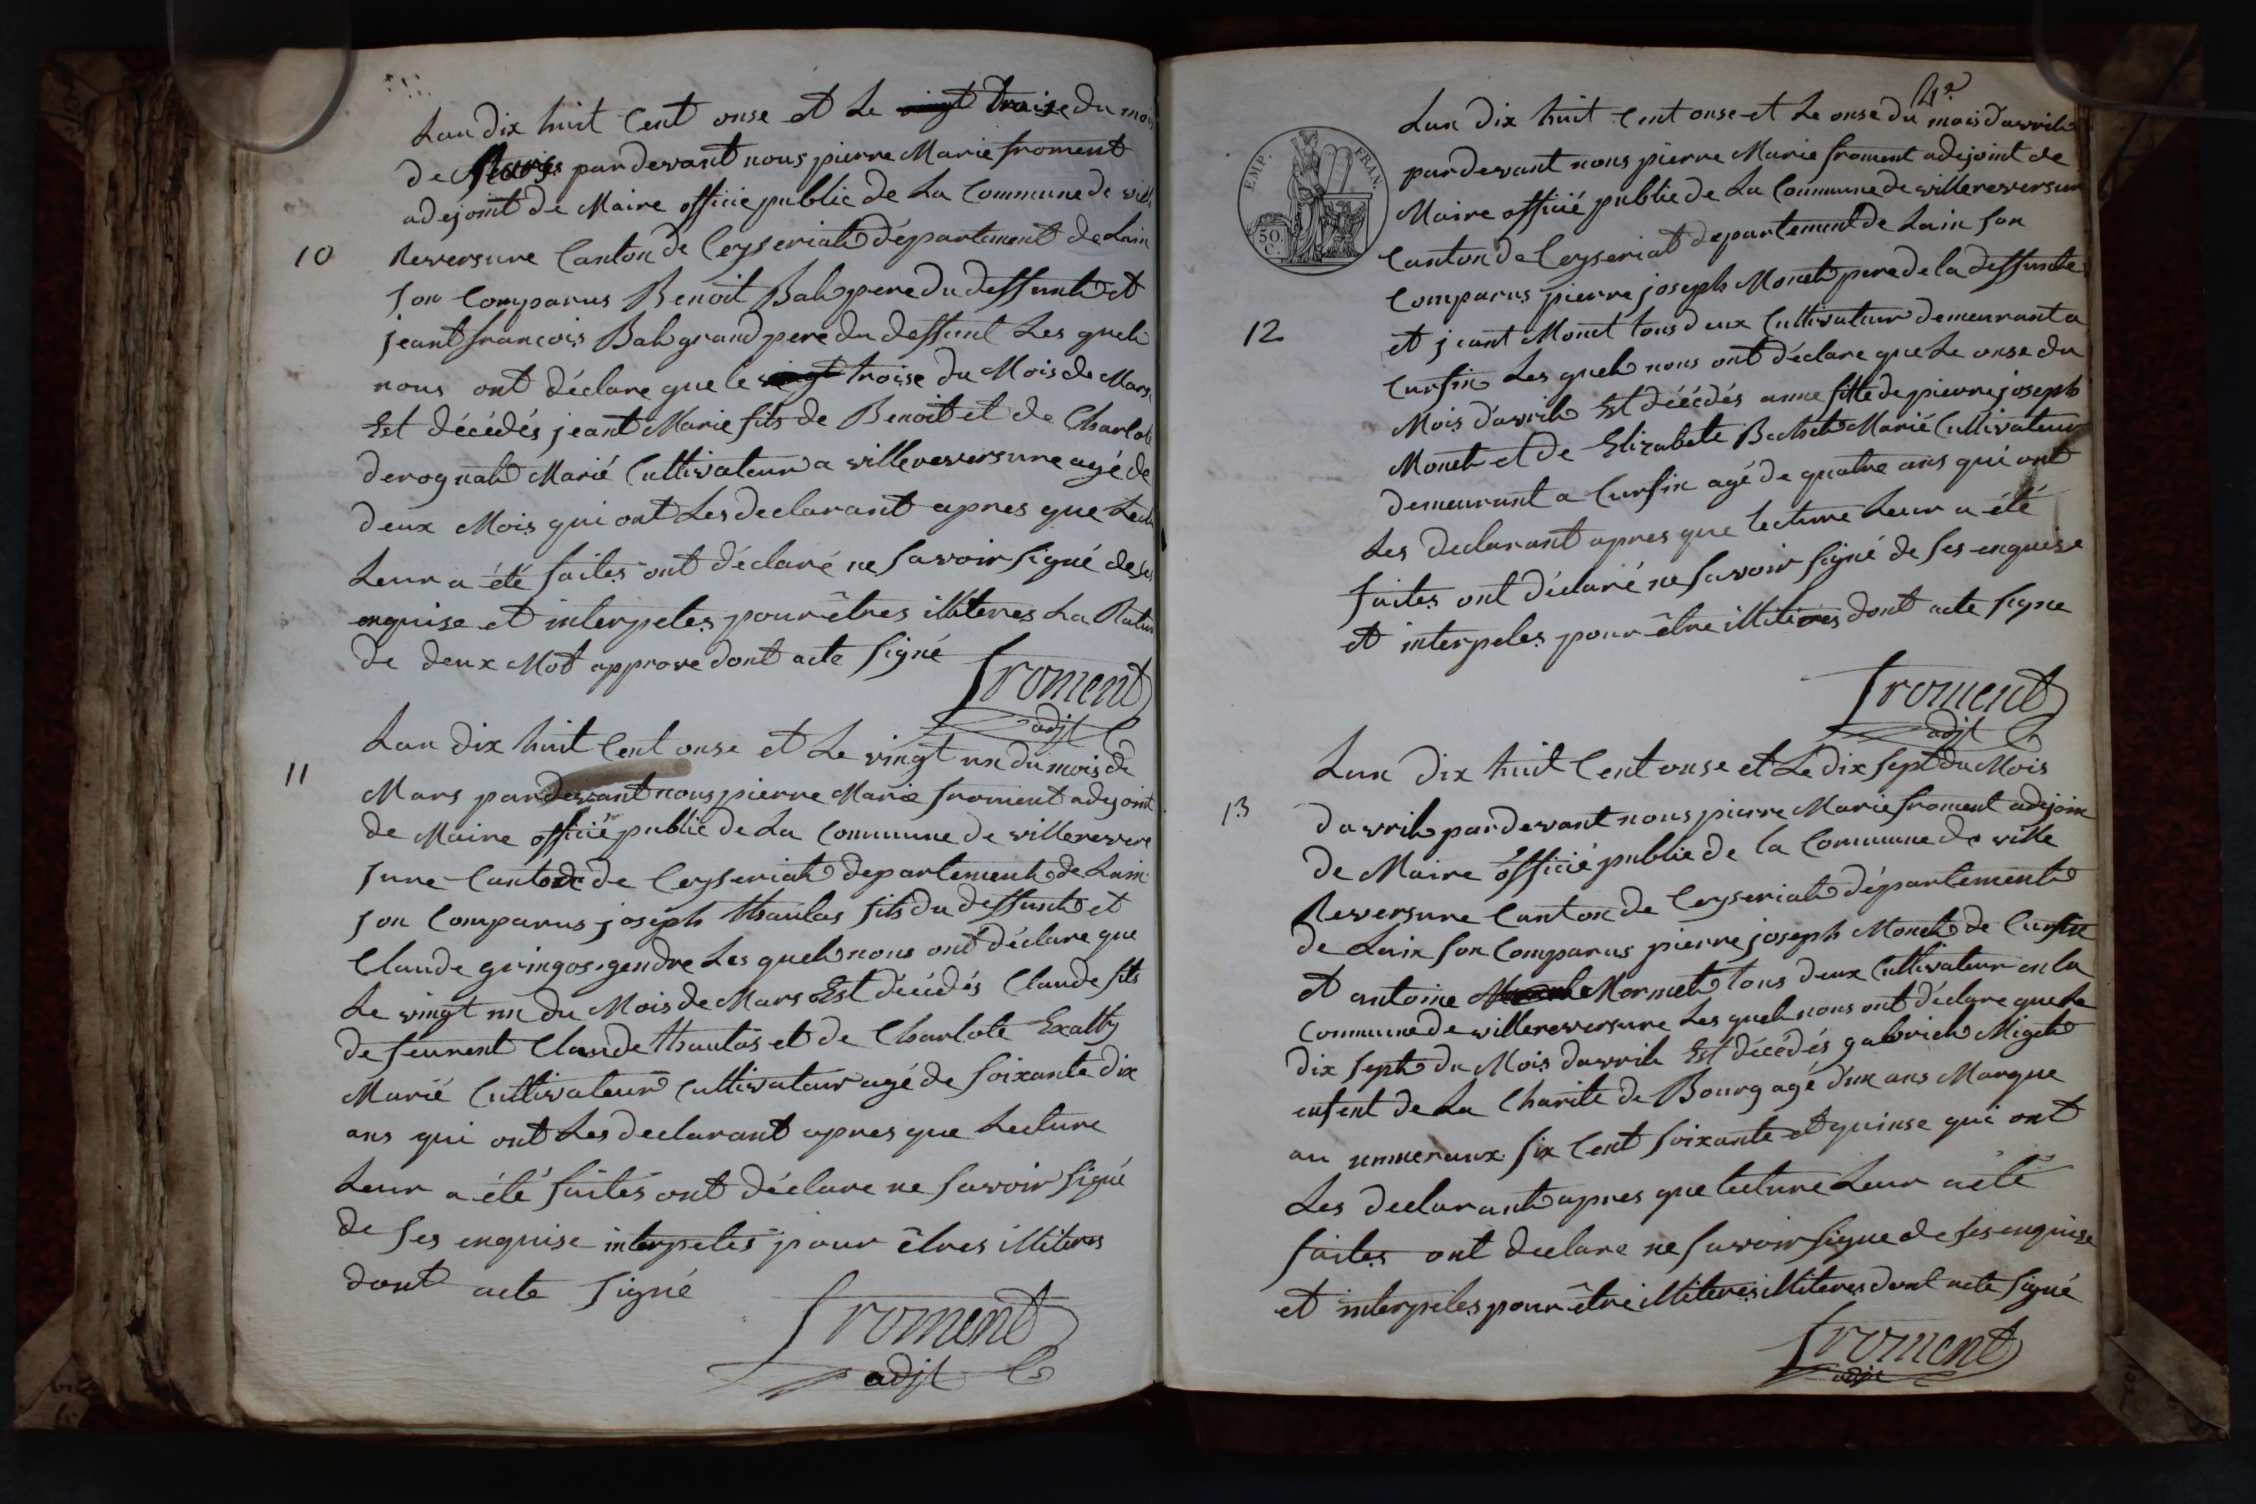 Lan dix huit Cent onse et Le vingt troise du mois
de Mars par devant nous pierre Marie froment
adejoint de Maire officié public de La Commune de ville
10
Reversure Canton de Ceyseriah département de Lain
son Comparus Benoit Bah pere du deffunt et
jeant francois Bah grand pere du deffunt Les queh
nous ont déclare que le vingt troise du Mois de Mars
Est décédés jeant Marie fits de Benoit et de Charlote
derognah Marié Cultivateur a villereversure agé de
deux Mois qui ont Les declarant apres que Lect
Leur a été faites ont déclaré ne savoir signé de ses
enquise et interpetes pour êtres illiteres La Ratur
de deux Mot approve dont acte signé
froment
adjt
Lan dix huit Cent onse et Le vingt un du mois de
11
Mars par devant nous pierre Marie froment adejoint
de Maire officié public de La Commune de villerever
sure Canton de Ceyseriah departement de Lain
son Comparus joseph thaulas fits du deffunt et
Claude gringos gendre Les queh nous ont déclare que
Le vingt un du Mois de Mars Est décédés Claude fits
de feurent Claude thautas et de Charlote Exalty
Marié Cultivateur Cultivateur agé de soixante dix
ans qui ont Les declarant apres que Lecture
Leur a été faites ont déclare ne savoir signé
de ses enquise interpetes pour êtres illiteres
dont acte signé
froment
adjt
4e
Lan dix huit Cent onse et Le onse du mois davrih
par devant nous pierre Marie froment adejoint de
EMP. FRAN.
50.
C.
Maire officié public de La Commune de villereversur
Canton de Ceyseriat departement de Lain son
Comparus pierre joseph Moneh pere de la deffunte
12
et jeant Monet tous deux Cultivateur demeurant a
Curfin Les queh nous ont déclare que Le onse du
Mois davrih Est décédés anne fitte de pierre joseph
Moneh et de Elizabete Bechet Marié Cultivateur
demeurant a Curfin agé de quatre ans qui ont
Les declarant apres que lecture Leur a été
faites ont déclaré ne savoir signé de ses enquise
et interpeles pour être illiteres dont acte signe
froment
adjt
Lan dix huit Cent onse et Le dix sept du Mois
13
davrih par devant nous pierre Marie froment adejoin
de Maire officié public de la Commune de ville
Reversure Canton de Ceyseriah département
de Lain son Comparus pierre joseph Moneh de Curfin
et antoine Mormeh tous deux Cultivateur en la
Commune de villereversure Les queh nous ont déclare que Le
dix sept du Mois davrih Est décédés gabrieh Migeh
enfent de La Charite de Bourg agé dun ans Marque
au numeraux six Cent soixante et quinse qui ont
Les declarant apres que lecture Leur a été
faites ont declare ne savoir signe de ses enquise
et interpeles pour être illiteres illiteres dont acte signé
froment
adjt